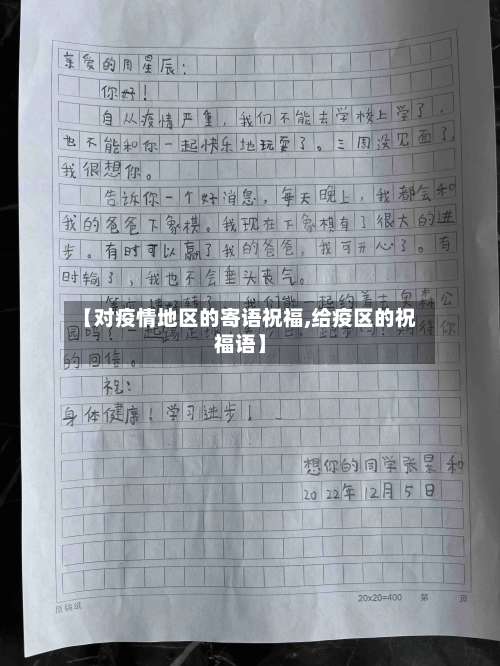 亲爱的周星辰：
你好！
自从疫情严重，我们不能去学校上学了，
也不能和你一起快乐地玩耍了。三周没见面了，
我很想你。
告诉你一个好消息，每天晚上，我都会和
我的爸爸下象棋。我现在下象棋有了很大的进
步。有时可以赢了我的爸爸，我可开心了。有
时输了，我也不会垂头丧气。
【对疫情地区的寄语祝福,给疫区的祝
福语】
的回信。
祝：
身体健康！学习进步！
想你的同学张
2022年12月5日
20x20=400 第 页